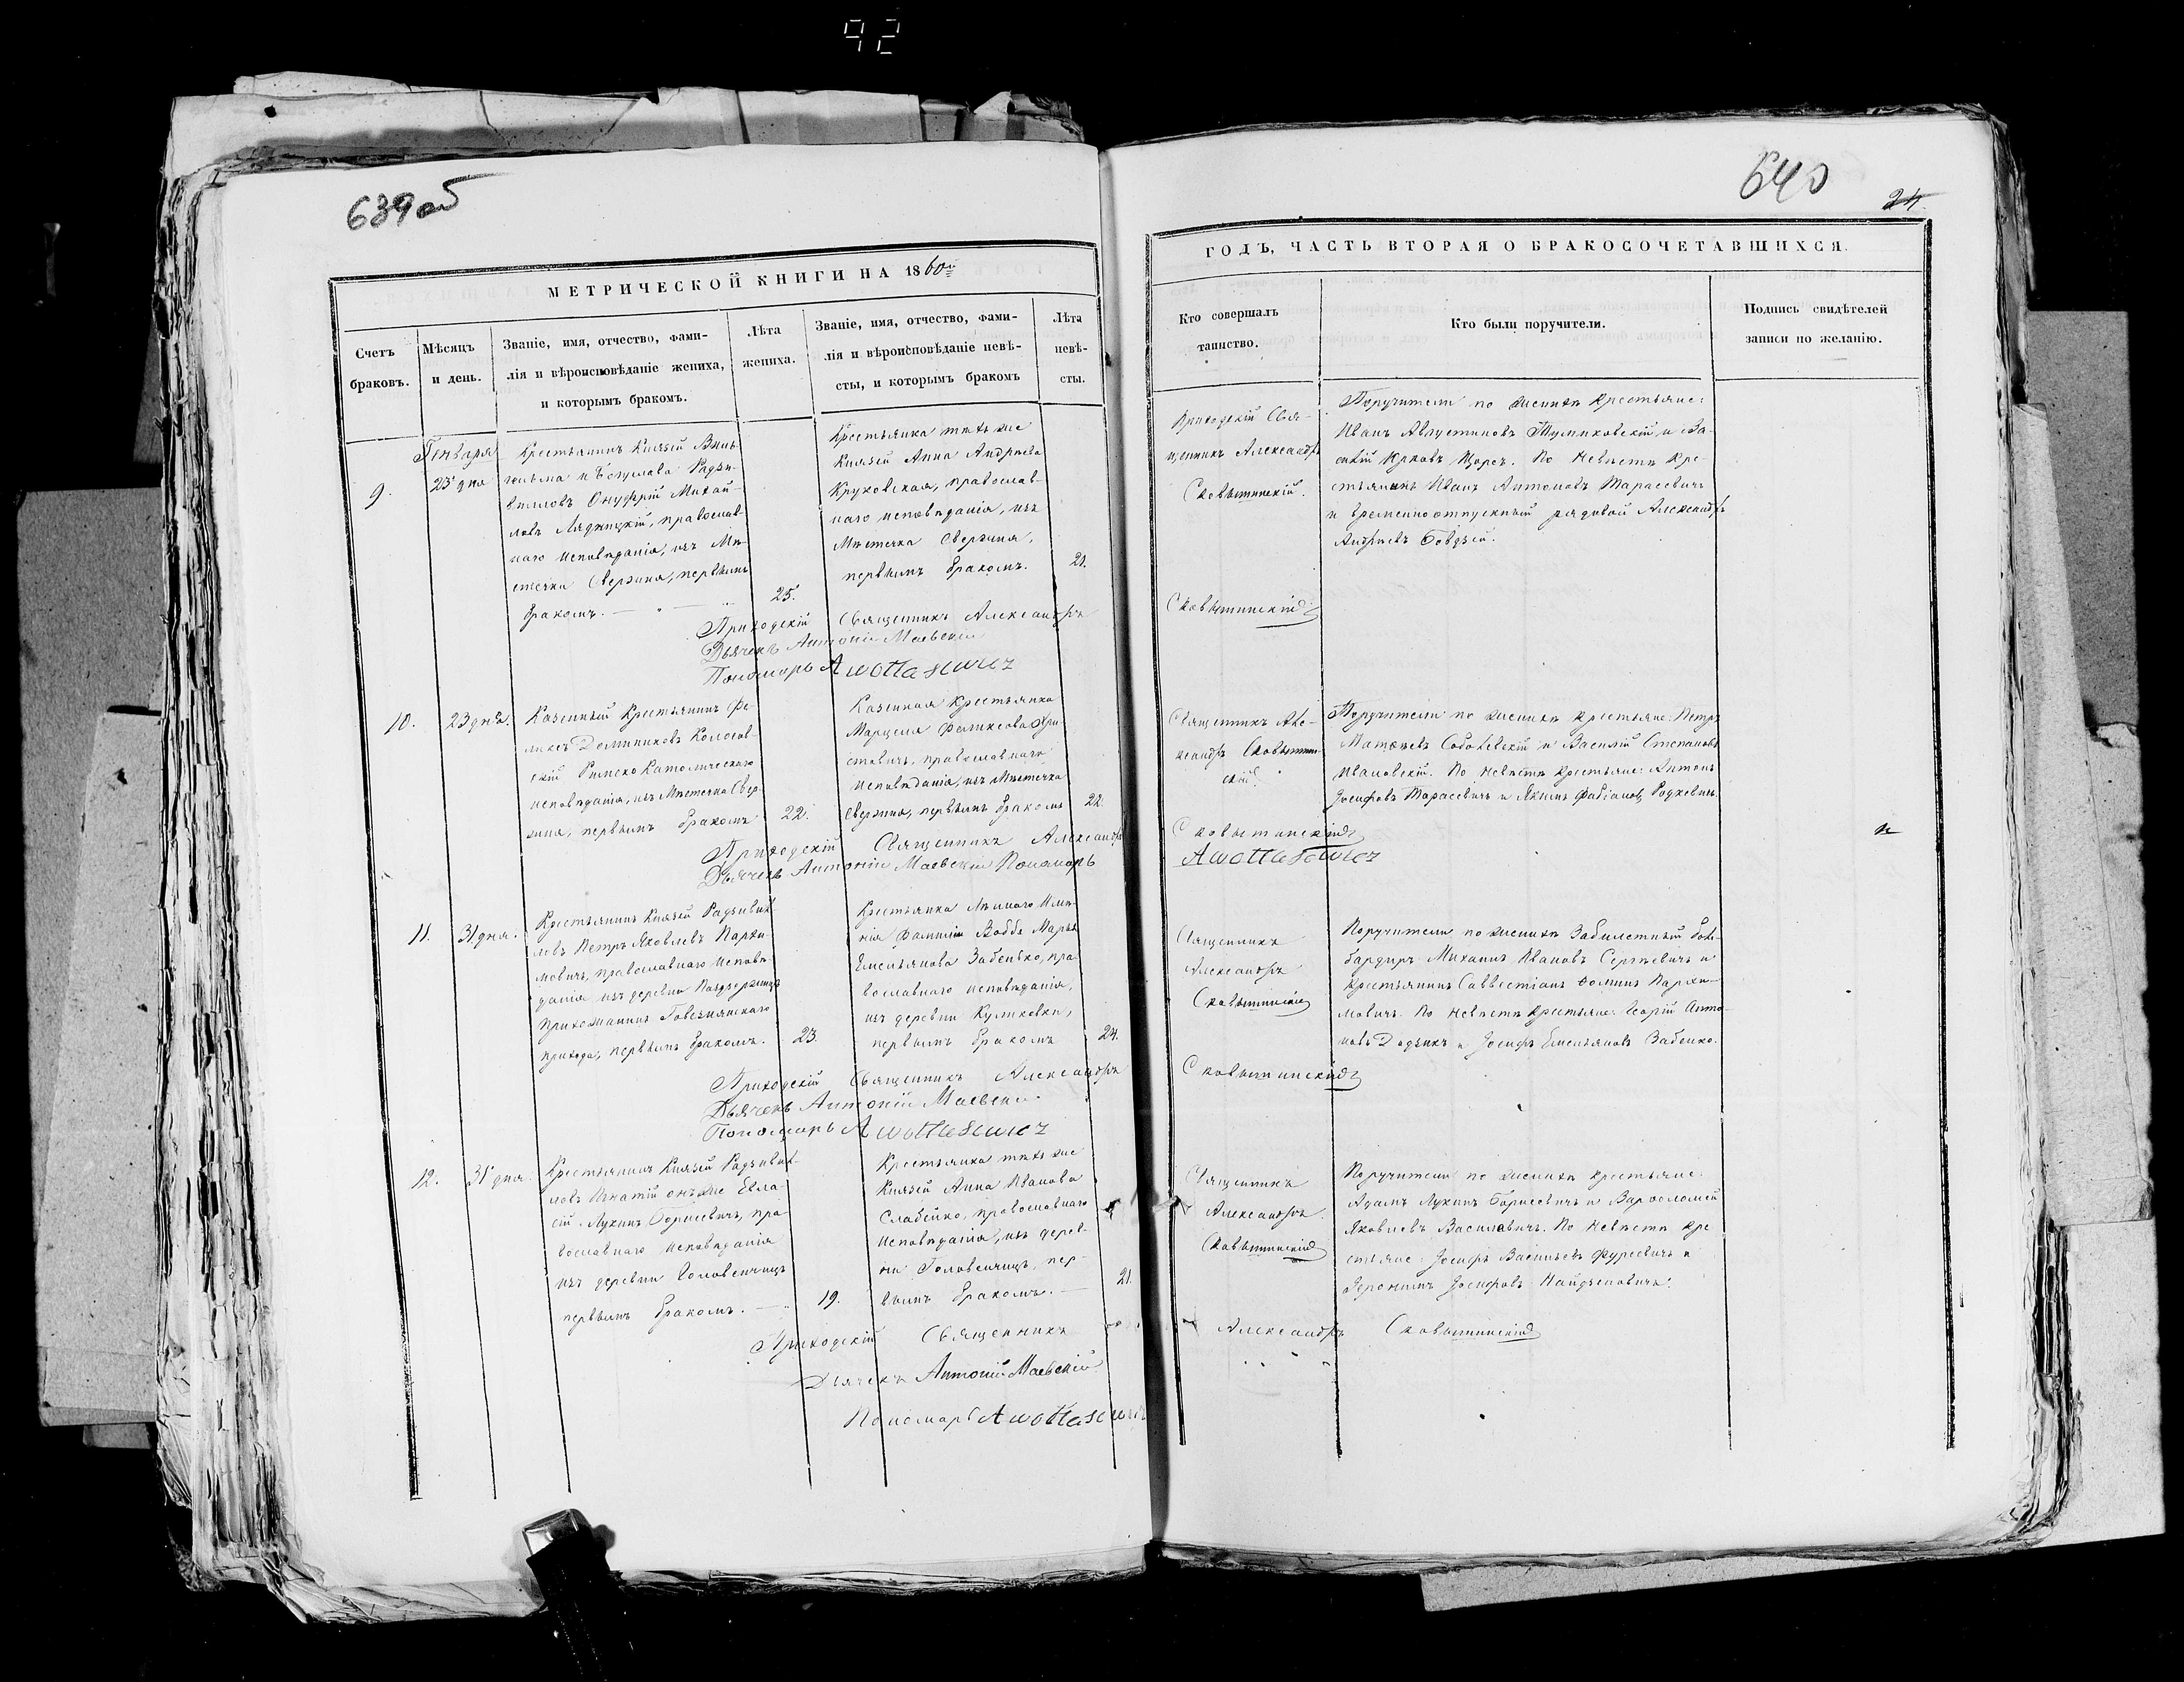 92
639 об
640
24
МЕТРИЧЕСКОЙ КНИГИ НА 1860й
ГОДЪ, ЧАСТЬ ВТОРАЯ О БРАКОСОЧЕТАВШИХСЯ.
Счетъ
браковъ.
Мѣсяцъ
и день.
Званіе, имя, отчество, фами-
лія и вѣроисповѣданіе жениха,
и которымъ бракомъ.
Лѣта
жениха.
Званіе, имя, отчество, фами-
лія и вѣроисповѣданіе невѣ-
сты, и которымъ бракомъ
Лѣта
невѣ-
сты.
Кто совершалъ
таинство.
Кто были поручители.
Подпись свидѣтелей
записи по желанію.
9.
Генваря
23 дня
Крестьянинъ Князей Виль-
гельма и Богуслава Радзи-
вилловъ Онуфрій Михай-
ловъ Лядницкій, православ-
наго исповѣданія, изъ Мѣ-
стечка Свержня, первымъ
бракомъ.
25.
Крестьянка тѣхъ же
Князей Анна Андреева
Круковская, православ-
наго исповѣданія, изъ
Мѣстечка Свержня,
первымъ бракомъ.
21.
Приходскій Свя-
щенникъ Александръ
Сковытинскій.
Поручители по женихѣ крестьяне:
Иванъ Августиновъ и Ва-
Юрковъ Царъ. По невѣстѣ кре-
стьянинъ Иванъ Антоновъ Тарасевичъ
и временноотпускный рядовой Александръ
Андреевъ
Приходскій Священникъ Александръ
Сковытинскій
Дьячекъ Антоній Маевскій
Пономарь A Wottasewicz
10.
23 дня.
Казенный Крестьянинъ Фе-
ликсъ Доминиковъ Колосов-
скій Римско Католическаго
исповѣданія, изъ Мѣстечка Свер-
жня, первымъ бракомъ
22.
Казенная Крестьянка
Марцеля Феликсова Хри-
стовичъ, православнаго
исповѣданія, изъ Мѣстечка
Свержня, первымъ бракомъ
22.
Священникъ Але-
ксандръ Сковытин-
скій
Поручители по женихѣ крестьяне: Петръ
Матѳеевъ Соболевскій и Василій Степановъ
Ивановскій. По невѣстѣ крестьяне: Антонъ
Іосифовъ Тарасевичъ и Якимъ Фабіановъ Родкевичъ
Приходскій Священникъ Александръ
Сковытинскій
Дьячекъ Антоній Маевскій Пономарь
A Wottasewicz
11.
31 дня.
Крестьянинъ Князей Радзивил-
ловъ Петръ Яковлевъ Пархи-
мовичъ, православнаго исповѣ-
данія изъ деревни
прихожанинъ
прихода, первымъ бракомъ.
23.
Крестьянка имѣ-
нія Фамиліи Марья
Емельянова Забенько, пра-
вославнаго исповѣданія,
изъ деревни Куликовки,
первымъ бракомъ
24.
Священникъ
Александръ
Сковытинскій
Поручители по женихѣ Забилетный бом-
бардиръ Михаилъ Ивановъ Сергѣевичъ и
крестьянинъ Савветіанъ Ѳоминъ Пархи-
мовичъ. По невѣстѣ крестьяне: Георгій Анто-
новъ Додзикъ и Іосифъ Емельяновъ Забенко.
Приходскій Священникъ Александръ
Сковытинскій
Дьячекъ Антоній Маевскій
Пономарь A Wottasewicz
12.
31 дня
Крестьянинъ Князей Радзивил-
ловъ Игнатій онъ же Евла-
сій Лукинъ Борисевичъ, пра-
вославнаго исповѣданія
изъ деревни Головенчицъ
первымъ бракомъ.
19.
Крестьянка тѣхъ же
Князей Анна Иванова
Слабейко, православнаго
исповѣданія, изъ дерев-
ни Головенчицъ, пер-
вымъ бракомъ.
21.
Священникъ
Александръ
Сковытинскій
Поручители по женихѣ крестьяне:
Адамъ Лукинъ Борисевичъ и Варѳоломей
Яковлевъ Василевичъ. По невѣстѣ кре
стьяне: Іосифъ Васильевъ Фурсевичъ и
Іеронимъ Іосифовъ Найдзеновичъ.
Приходскій Священникъ
Александръ Сковытинскій
Дьячекъ Антоній Маевскій
Пономарь A Wottasewicz